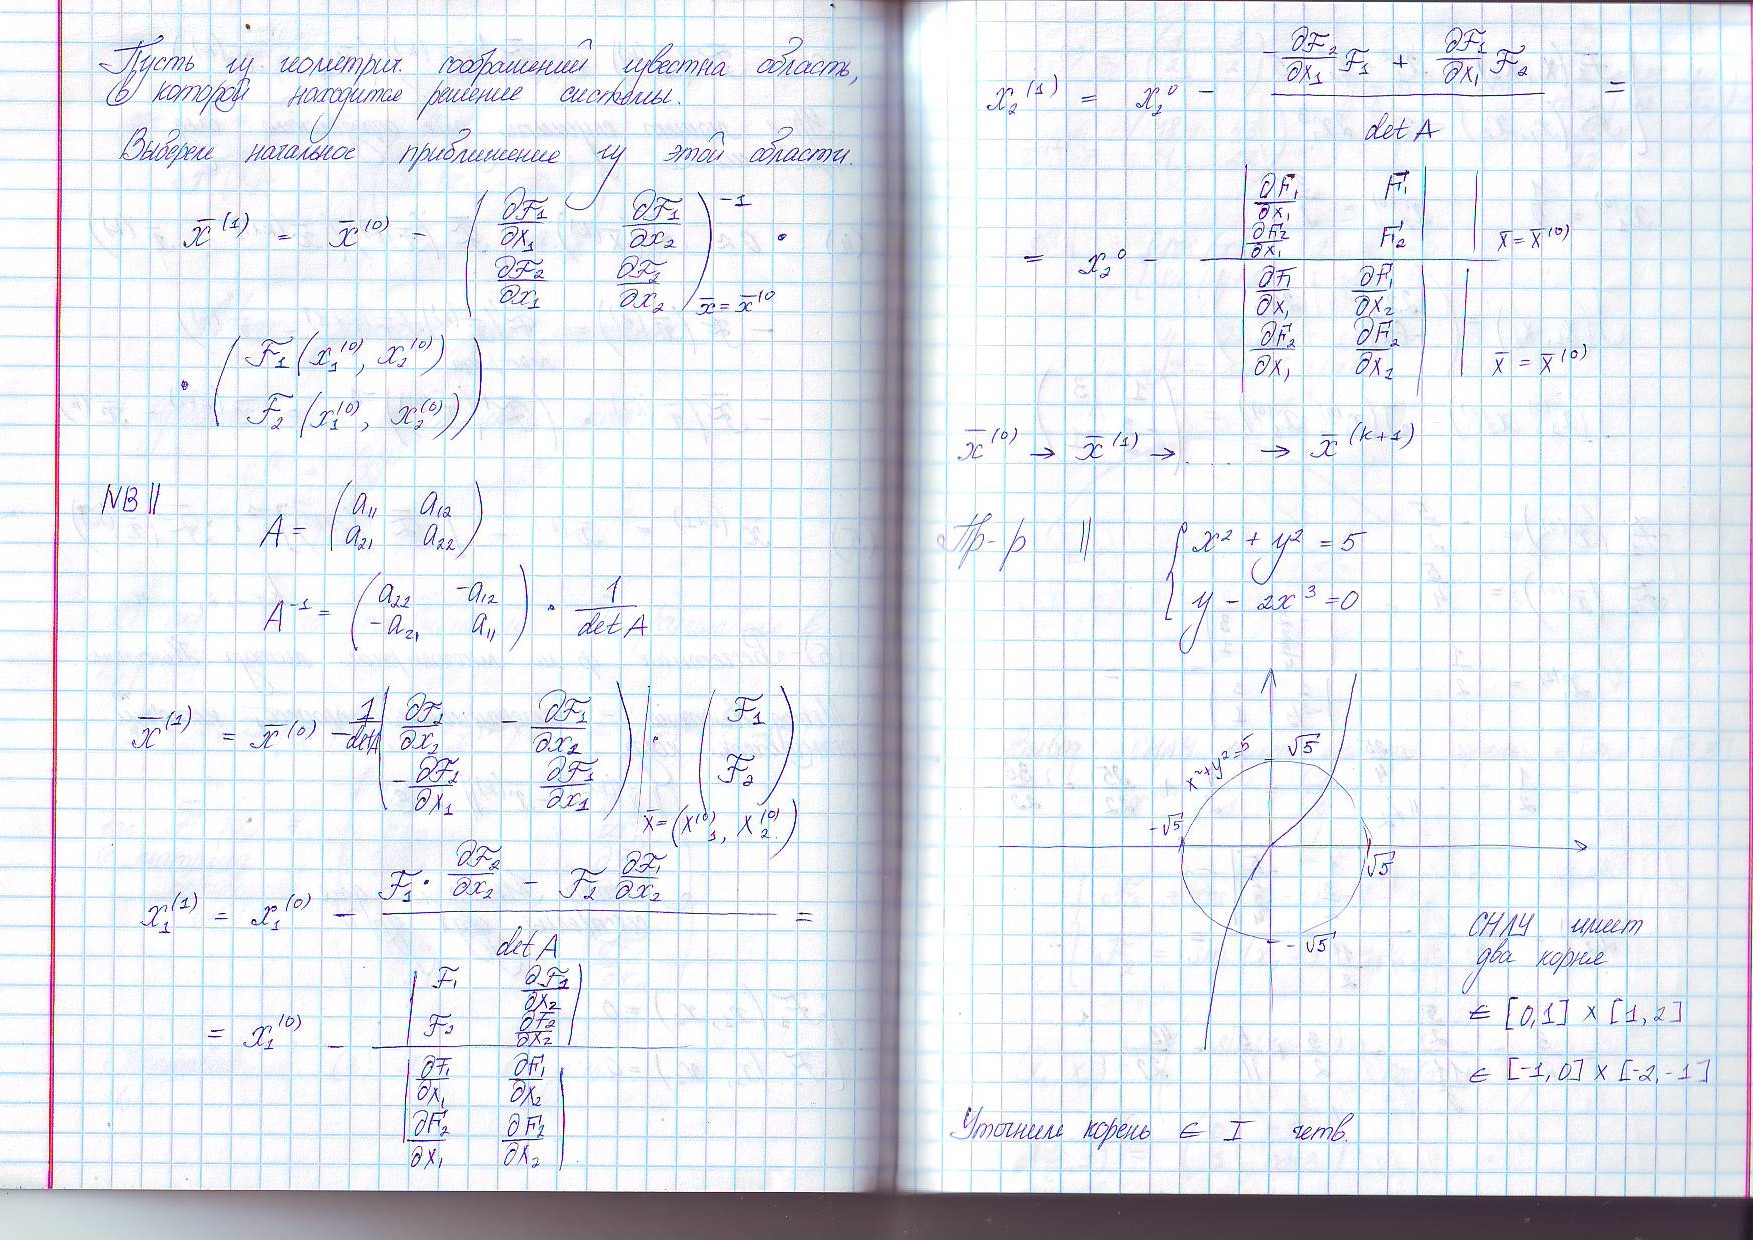 Пусть из геометрич. соображений известна область,
в которой находится решение системы.
Выберем начальное приближение из этой области.
x̄⁽¹⁾ = x̄⁽⁰⁾ − ( ∂F₁/∂x₁ ∂F₁/∂x₂ )⁻¹ ·
( ∂F₂/∂x₁ ∂F₂/∂x₂ ) x̄ = x̄⁽⁰
· ( F₁(x₁⁽⁰⁾, x₂⁽⁰⁾)
F₂(x₁⁽⁰⁾, x₂⁽⁰⁾) )
NB ||
A = ( a₁₁ a₁₂
a₂₁ a₂₂ )
A⁻¹ = ( a₂₂ −a₁₂
−a₂₁ a₁₁ ) · 1/det A
x̄⁽¹⁾ = x̄⁽⁰⁾ − 1/det A ( ∂F₂/∂x₂ − ∂F₁/∂x₂ ) | · ( F₁
− ∂F₂/∂x₁ ∂F₁/∂x₁ F₂ )
x̄ = (x₁⁽⁰⁾, x₂⁽⁰⁾)
x₁⁽¹⁾ = x₁⁽⁰⁾ − (F₁ · ∂F₂/∂x₂ − F₂ ∂F₁/∂x₂) / det A =
= x₁⁽⁰⁾ − | F₁ ∂F₁/∂x₂
F₂ ∂F₂/∂x₂ |
| ∂F₁/∂x₁ ∂F₁/∂x₂
∂F₂/∂x₁ ∂F₂/∂x₂ |
x₂⁽¹⁾ = x₂⁰ − (−∂F₂/∂x₁ F₁ + ∂F₁/∂x₁ F₂) / det A =
= x₂⁰ − | ∂F₁/∂x₁ F₁ |
| ∂F₂/∂x₁ F₂ | | x̄ = x̄⁽⁰⁾
| ∂F₁/∂x₁ ∂F₁/∂x₂ |
| ∂F₂/∂x₁ ∂F₂/∂x₂ | | x̄ = x̄⁽⁰⁾
x̄⁽⁰⁾ → x̄⁽¹⁾ → .... → x̄⁽ᵏ⁺¹⁾
Пр-р || { x² + y² = 5
y − 2x³ = 0
x²+y²=5
√5
−√5
√5
−√5
СНЛУ имеет
два корня
∈ [0,1] × [1,2]
∈ [-1,0] × [-2,-1]
Уточним корень ∈ I четв.